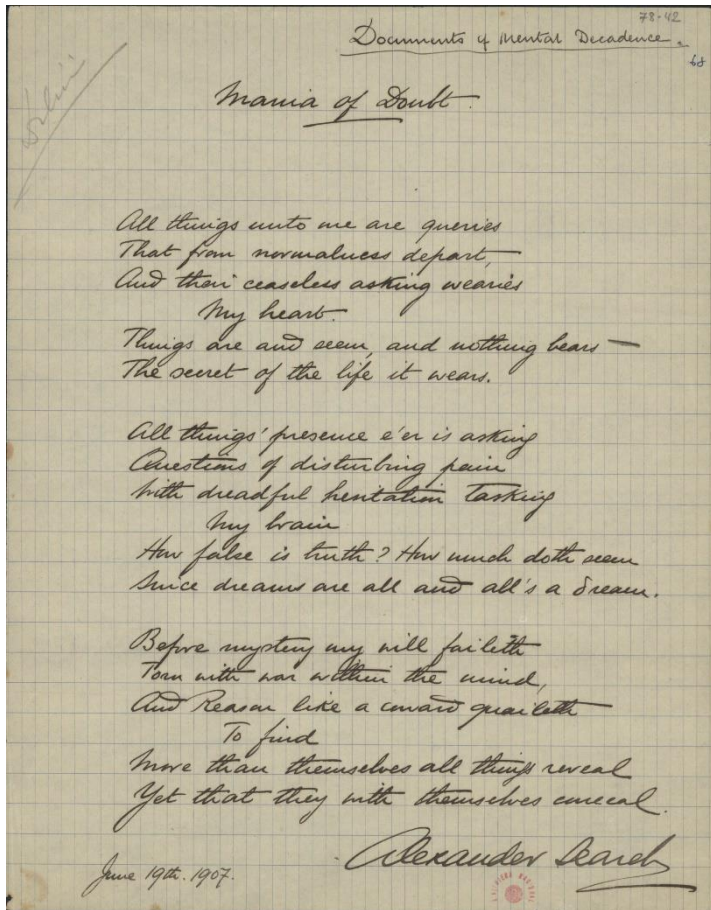 78-42
Documents of Mental Decadence.
68
Mania of Doubt.
All things unto me are queries
That from normalness depart,
And their ceaseless asking wearies
My heart.
Things are and seem, and nothing bears —
The secret of the life it wears.
All things' presence e'er is asking
Questions of disturbing pain
With dreadful hesitation Tasking
My brain
How false is truth? How much doth seem
Since dreams are all and all's a dream.
Before mystery my will faileth
Torn with war within the mind,
And Reason like a coward quaileth
To find
More than themselves all things reveal
Yet that they with themselves conceal.
Alexander Search
June 19th. 1907.